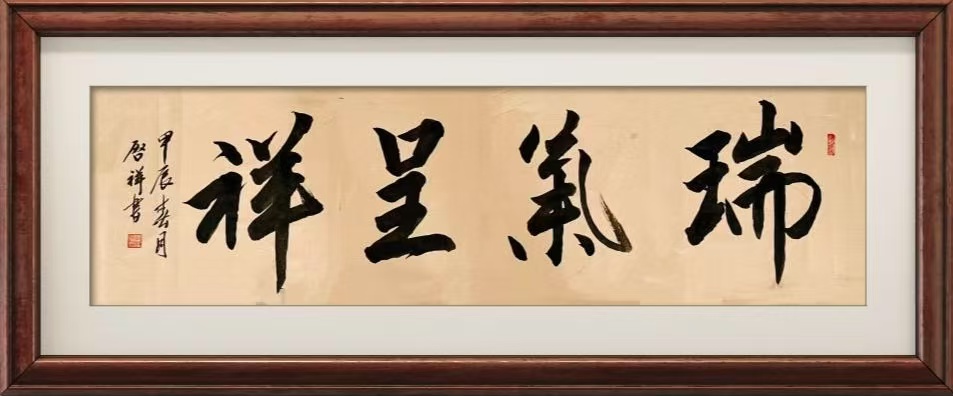 瑞氣呈祥
甲辰春月
啓祥書